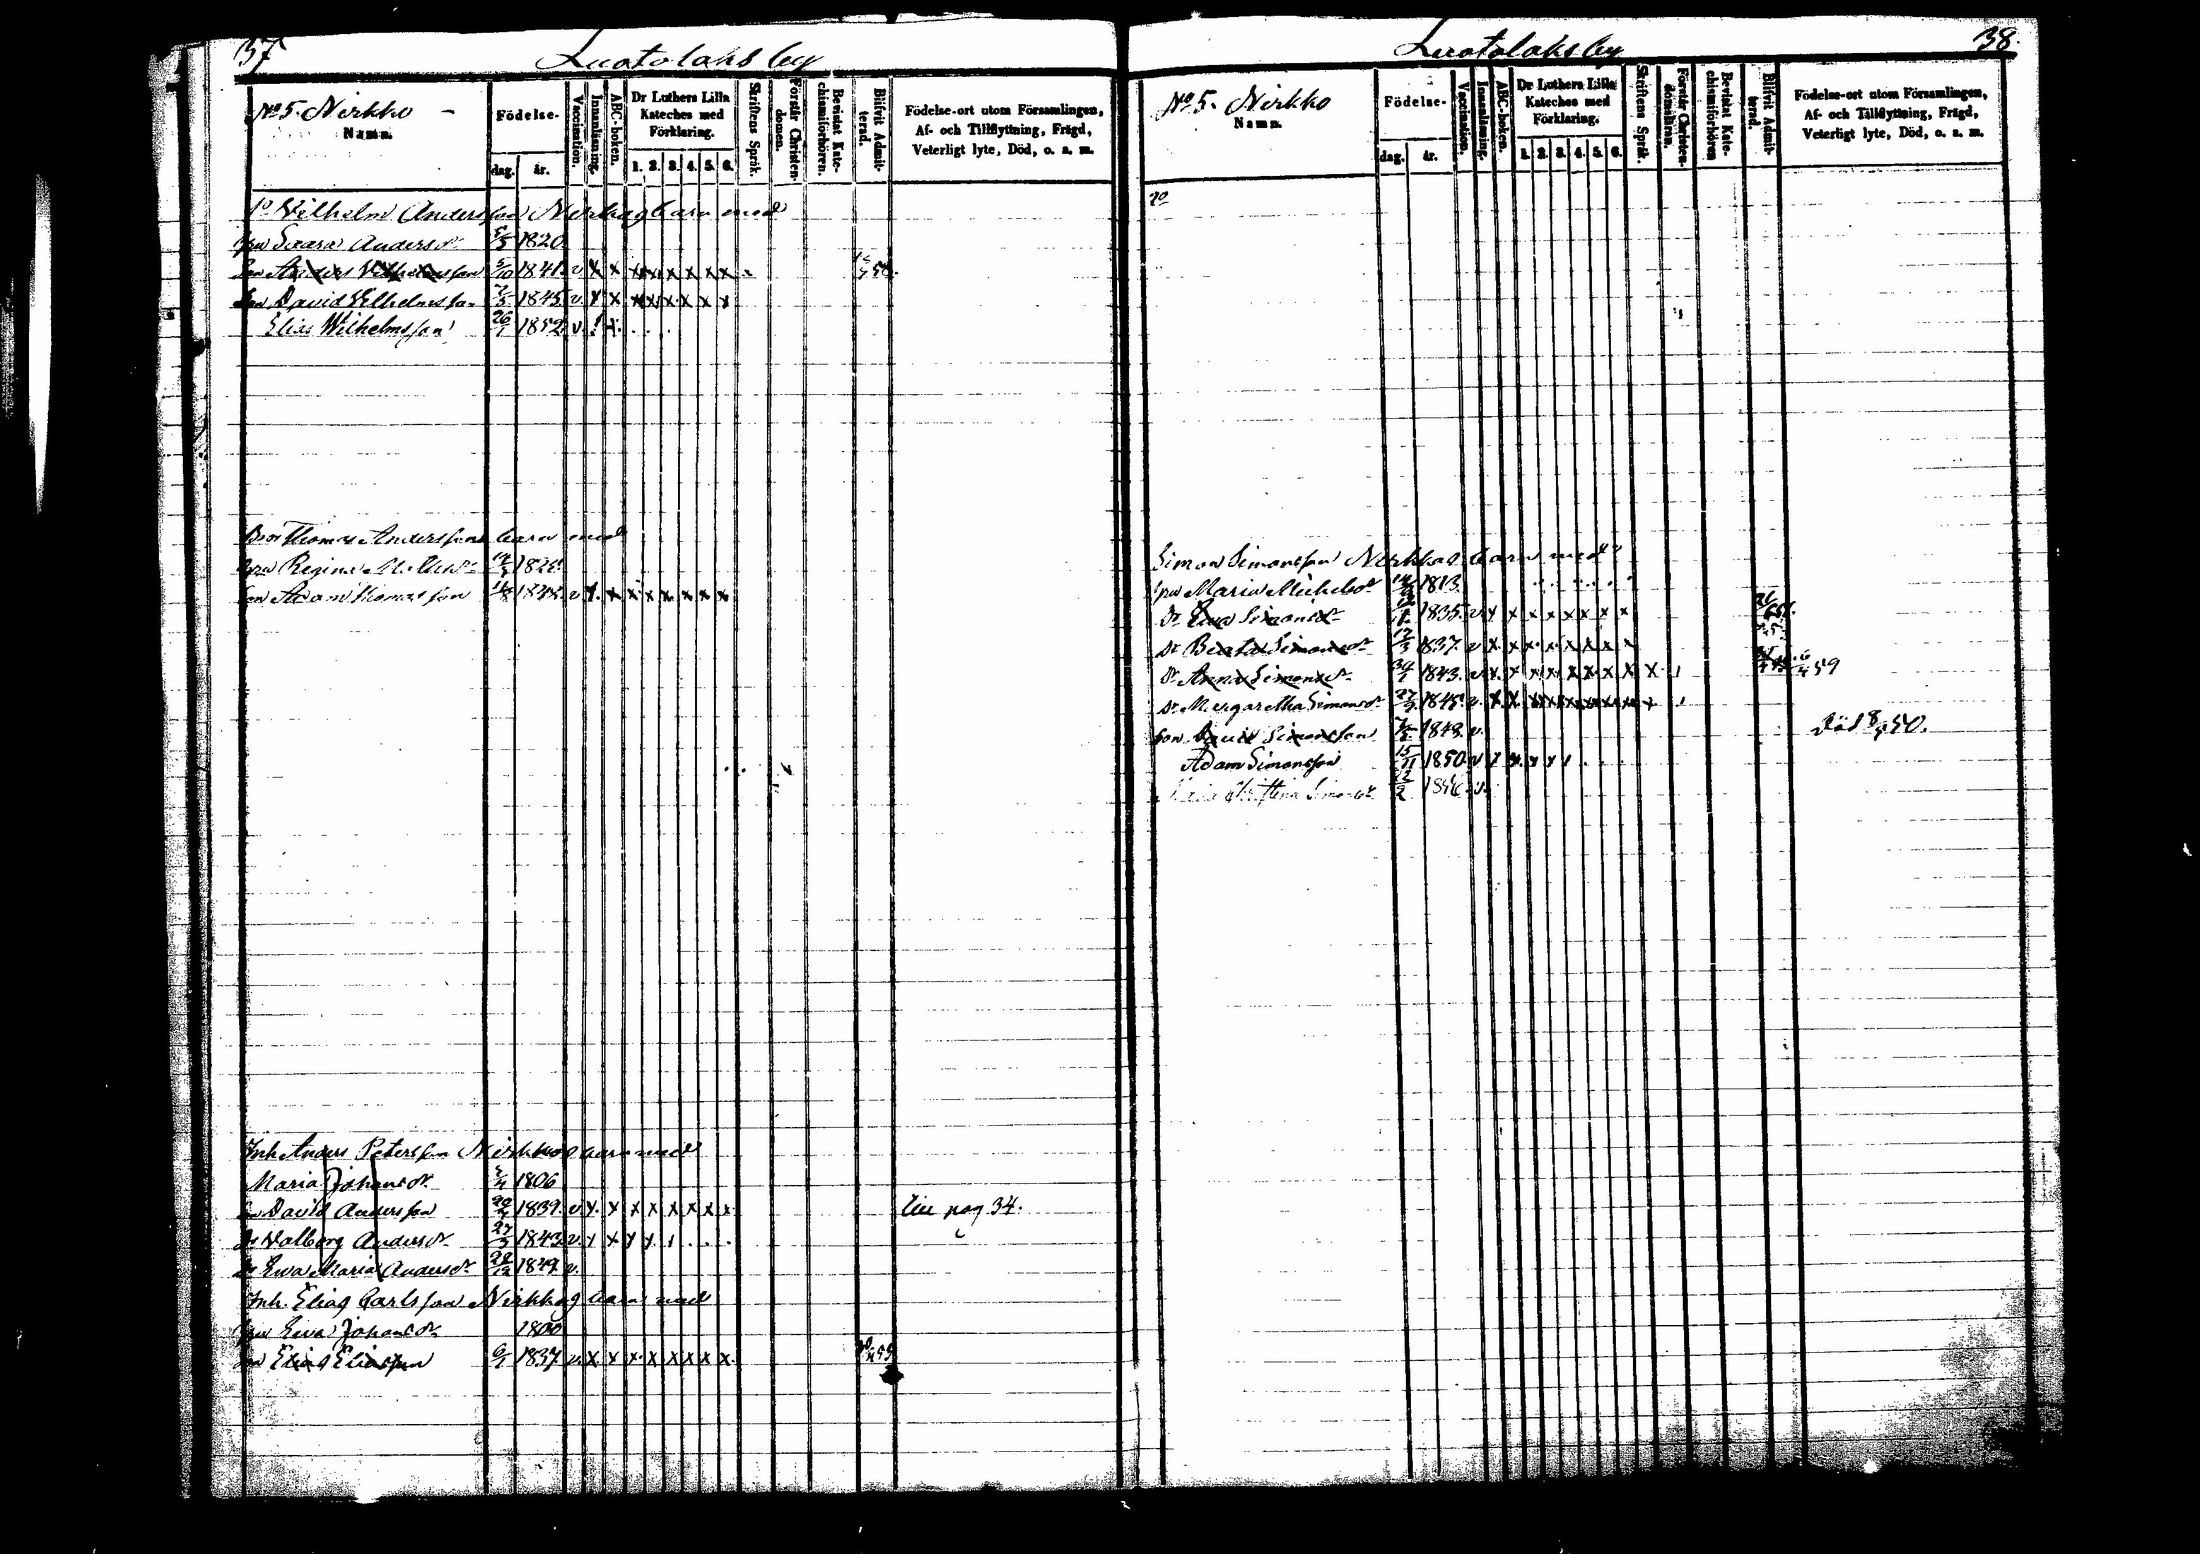 37
Luotolaks by
No 5. Nirkko
Namn.
Födelse-
dag.
år.
Vaccination.
Innanläsning.
ABC-boken.
Dr Luthers Lilla
Kateches med
Förklaring.
1. 2. 3. 4. 5. 6.
Skriftens Språk.
Förstår Christen-
domen.
Bevistat Kate-
chismiförhören.
Blifvit Admit-
terad.
Födelse-ort utom Församlingen,
Af- och Tillflyttning, Frägd,
Veterligt lyte, Död, o. s. m.
1o Wilhelm Andersson Nirkkos barn med
hu Saara Andersdr 5/3 1820
Son Anders Wilhelmsson 5/10 1841. v x x x x x x x x
Son David Wilhelmsson 7/5 1845. v x x x x x x x x
Elias Wilhelmsson 26/1 1852. v
Bror Thomas Anderssons barn med
hu Regina
Son Adam Thomasson v x x x x x x x x
Inh Anders Petersson Nirkkos barn med
Maria Johansdr 1806
Son David Andersson 20/ 1839. v x x x x x x x x
se pag 34.
Dr Walborg Andersdr 27/3 1843. v x x x x
Dr Ewa Maria Andersdr 28/12 1847 v.
Inh. Elias Carlsson Nirkkos barn med
hu Ewa Johansdr 1800
Son Elias Eliasson 6/1 1837. v x x x x x x x x
38.
Luotolaks by
No 5. Nirkko
Namn.
Födelse-
dag.
år.
Vaccination.
Innanläsning.
ABC-boken.
Dr Luthers Lilla
Kateches med
Förklaring.
1. 2. 3. 4. 5. 6.
Skriftens Språk.
Förstår Christen-
domsläran.
Bevistat Kate-
chismiförhören
Blifvit Admit-
terad.
Födelse-ort utom Församlingen,
Af- och Tillflyttning, Frägd,
Veterligt lyte, Död, o. s. m.
2o
Simon Simonsson Nirkkos barn med
hu Maria Michelsdr 1813.
Dr Ewa Simonsdr 1835. v x x x x x x x x
Dr Beata Simonsdr 17/3 1837. v x x x x x x x x
Dr Anna Simonsdr 1843. v x x x x x x x x x 59
Dr Margaretha Simonsdr 1845. v x x x x x x x x x
Son David Simonsson 1848. v.
Död 8/ 50.
Adam Simonsson 15/11 1850. v x x x x
Christina Simonsdr 12/2 v.